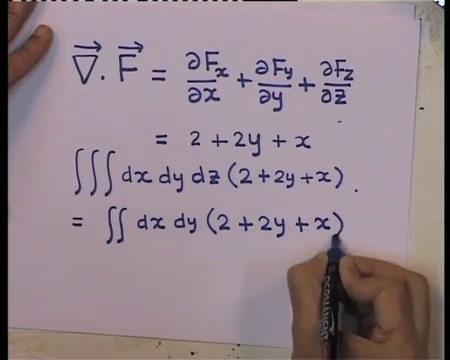 ∇⃗ . F⃗ = ∂Fx/∂x + ∂Fy/∂y + ∂Fz/∂z
= 2 + 2y + x
∫∫∫ dx dy dz (2 + 2y + x) .
= ∫∫ dx dy (2 + 2y + x)